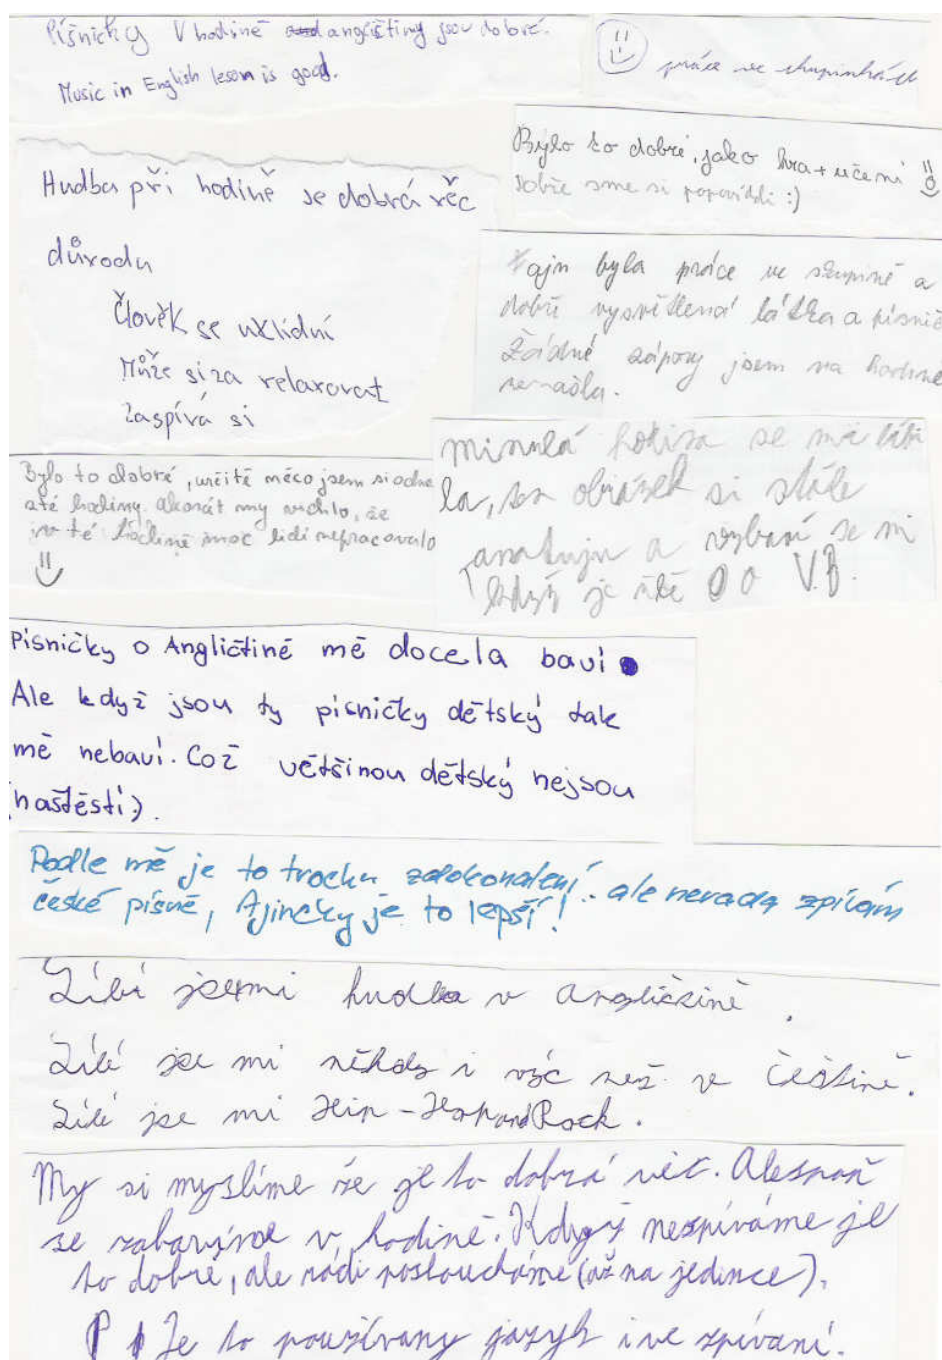 Písničky V hodině angličtiny jsou dobré.
Music in English leson is good.
práce ve skupinkách
Bylo to dobré, jako hra + učení
dobře sme si popovídali :)
Hudba při hodině se dobrá věc
důvodu
Člověk se uklidní
Může si za relaxovat
Zaspívá si
Fajn byla práce ve skupině a
dobře vysvětlená látka a písnič
Žádné zápory jsem na hodině
nenašla.
Bylo to dobré, určitě něco jsem si odne
zté hodiny. Akorát my vadilo, že
v té hodině moc lidí nepracovalo
minulá hodina se mě líbi
la, ten obrázek si stále
a vybaví se mi
když je řeč O V.B.
Písničky o Angličtině mě docela baví
Ale když jsou ty písničky dětský tak
mě nebaví. Což většinou dětský nejsou
(naštěstí).
Podle mě je to trochu zdokonalení.. ale nerada zpívám
české písně, Ajincky je to lepší!
Líbí jse mi hudba v angličtině.
Líbí jse mi někdy i výc než ve Češtině.
Líbí jse mi Hip-Hop and Rock.
My si myslíme že je to dobrá věc. Alespoň
se zabavíme v hodině. Když nespíváme je
to dobré, ale rádi posloucháme (až na jedince).
Je to používany jazyk i ve zpívaní.